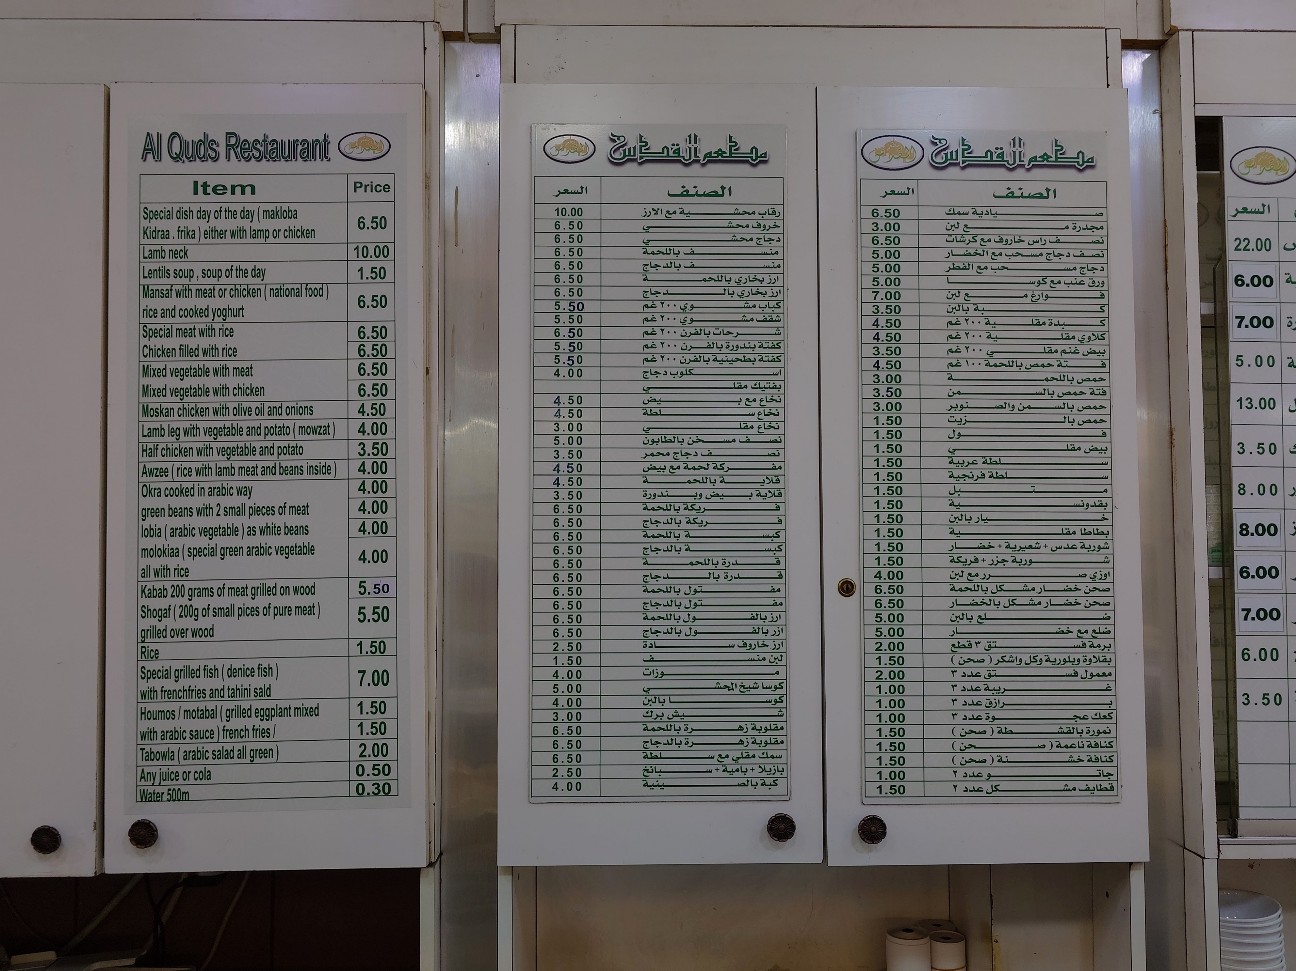 Al Quds Restaurant
Item Price
Special dish day of the day ( makloba
Kidraa . frika ) either with lamp or chicken 6.50
Lamb neck 10.00
Lentils soup , soup of the day 1.50
Mansaf with meat or chicken ( national food )
rice and cooked yoghurt 6.50
Special meat with rice 6.50
Chicken filled with rice 6.50
Mixed vegetable with meat 6.50
Mixed vegetable with chicken 6.50
Moskan chicken with olive oil and onions 4.50
Lamb leg with vegetable and potato ( mowzat ) 4.00
Half chicken with vegetable and potato 3.50
Awzee ( rice with lamb meat and beans inside ) 4.00
Okra cooked in arabic way 4.00
green beans with 2 small pieces of meat 4.00
lobia ( arabic vegetable ) as white beans 4.00
molokiaa ( special green arabic vegetable
all with rice 4.00
Kabab 200 grams of meat grilled on wood 5.50
Shogaf ( 200g of small pices of pure meat )
grilled over wood 5.50
Rice 1.50
Special grilled fish ( denice fish )
with frenchfries and tahini sald 7.00
Houmos / motabal ( grilled eggplant mixed 1.50
with arabic sauce ) french fries / 1.50
Tabowla ( arabic salad all green ) 2.00
Any juice or cola 0.50
Water 500m 0.30
مطعم القدس
الصنف السعر
رقاب محشية مع الارز 10.00
خروف محشي 6.50
دجاج محشي 6.50
منسف باللحمة 6.50
منسف بالدجاج 6.50
ارز بخاري باللحمة 6.50
ارز بخاري بالدجاج 6.50
كباب مشوي ٢٠٠ غم 5.50
شقف مشوي ٢٠٠ غم 5.50
شرحات بالفرن ٢٠٠ غم 6.50
كفتة بندورة بالفرن ٢٠٠ غم 5.50
كفتة بطحينية بالفرن ٢٠٠ غم 5.50
اسكلوب دجاج 4.00
بفتيك مقلي
نخاع مع بيض 4.50
نخاع سلطة 4.50
نخاع مقلي 3.00
نصف مسخن بالطابون 5.00
نصف دجاج محمر 3.50
مفركة لحمة مع بيض 4.50
قلاية باللحمة 4.50
قلاية بيض وبندورة 3.50
فريكة باللحمة 6.50
فريكة بالدجاج 6.50
كبسة باللحمة 6.50
كبسة بالدجاج 6.50
قدرة باللحمة 6.50
قدرة بالدجاج 6.50
مفتول باللحمة 6.50
مفتول بالدجاج 6.50
ارز بالفول باللحمة 6.50
ارز بالفول بالدجاج 6.50
ارز خاروف سادة 2.50
لبن منسف 1.50
موزات 4.00
كوسا شيخ المحشي 5.00
كوسا بالبن 4.00
شيش برك 3.00
مقلوبة زهرة باللحمة 6.50
مقلوبة زهرة بالدجاج 6.50
سمك مقلي مع سلطة 6.50
بازيلا + بامية + سبانخ 2.50
كبة بالصينية 4.00
مطعم القدس
الصنف السعر
صيادية سمك 6.50
مجدرة مع لبن 3.00
نصف راس خاروف مع كرشات 6.50
نصف دجاج مسحب مع الخضار 5.00
دجاج مسحب مع الفطر 5.00
ورق عنب مع كوسا 5.00
فوارغ مع لبن 7.00
كبة بالبن 3.50
كبدة مقلية ٢٠٠ غم 4.50
كلاوي مقلية ٢٠٠ غم 4.50
بيض غنم مقلي ٢٠٠ غم 3.50
فتة حمص باللحمة ١٠٠ غم 4.50
حمص باللحمة 3.00
فتة حمص بالسمن 3.50
حمص بالسمن والصنوبر 3.00
حمص بالزيت 1.50
فول 1.50
بيض مقلي 1.50
سلطة عربية 1.50
سلطة فرنجية 1.50
متبل 1.50
بقدونسية 1.50
خيار بالبن 1.50
بطاطا مقلية 1.50
شوربة عدس + شعيرية + خضار 1.50
شوربة جزر + فريكة 1.50
اوزي صرر مع لبن 4.00
صحن خضار مشكل باللحمة 6.50
صحن خضار مشكل بالخضار 6.50
ضلع بالبن 5.00
ضلع مع خضار 5.00
برمة فستق ٣ قطع 2.00
بقلاوة وبلورية وكل واشكر ( صحن ) 1.50
معمول فستق عدد ٣ 2.00
غريبة عدد ٣ 1.00
برازق عدد ٣ 1.00
كعك عجوة عدد ٣ 1.00
نمورة بالقشطة ( صحن ) 1.50
كنافة ناعمة ( صحن ) 1.50
كنافة خشنة ( صحن ) 1.50
جاتو عدد ٢ 1.00
قطايف مشكل عدد ٢ 1.50
السعر
22.00
6.00
7.00
5.00
13.00
3.50
8.00
8.00
6.00
7.00
6.00
3.50